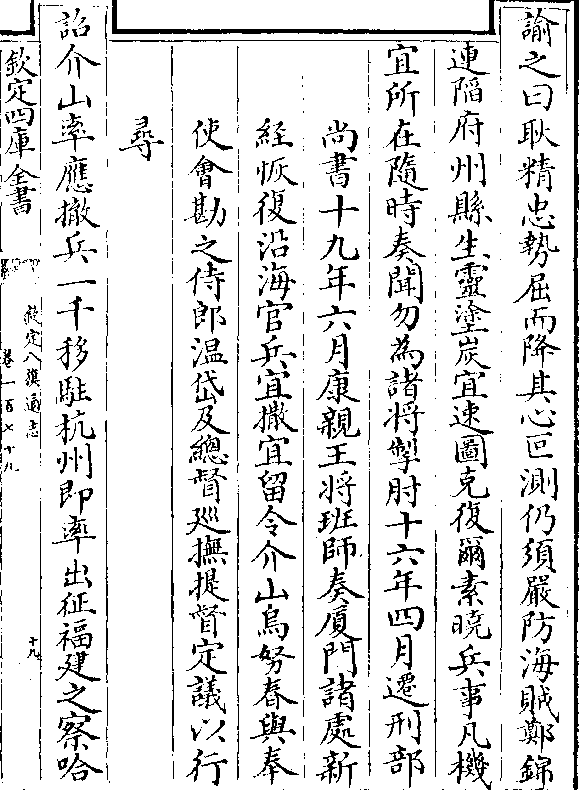 諭之曰耿精忠勢屈而降其心叵測仍須嚴防海賊鄭錦
連陷府州縣生靈塗炭宜速圖克復爾素曉兵事凡機
宜所在隨時奏聞勿為諸將掣肘十六年四月遷刑部
尚書十九年六月康親王將班師奏厦門諸處新
經恢復沿海官兵宜撤宜留令介山烏努春與奉
使會勘之侍郎溫岱及總督巡撫提督定議以行
尋
詔介山率應撤兵一千移駐杭州即率出征福建之察哈
欽定四庫全書
欽定八旗通志
卷一百七十九
十九